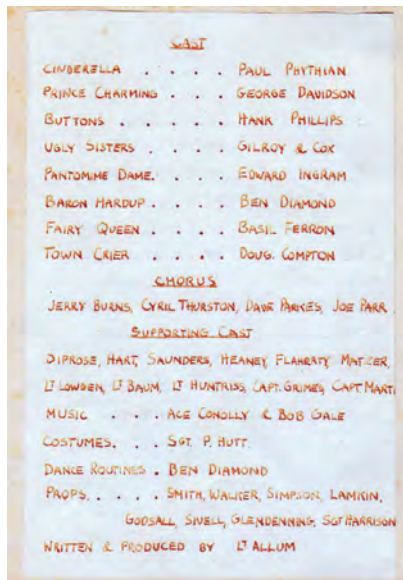 CAST
CINDERELLA . . . . PAUL PHYTHIAN
PRINCE CHARMING . . . GEORGE DAVIDSON
BUTTONS . . . . . HANK PHILLIPS
UGLY SISTERS . . . . GILROY & COX
PANTOMIME DAME. . . . EDWARD INGRAM
BARON HARDUP . . . . BEN DIAMOND
FAIRY QUEEN . . . . BASIL FERRON
TOWN CRIER . . . . DOUG. COMPTON
CHORUS
JERRY BURNS, CYRIL THURSTON, DAVE PARKES, JOE PARR
SUPPORTING CAST
DIPROSE, HART, SAUNDERS, HEANEY, FLAHERTY,
LT LOWDEN, LT BAUM, LT HUNTRISS, CAPT. GRIMES, CAPT. MART
MUSIC . . . ACE CONOLLY & BOB GALE
COSTUMES. . . SGT. P. HUTT.
DANCE ROUTINES . BEN DIAMOND
PROPS. . . . . SMITH, WALKER, SIMPSON, LAMKIN,
GODSALL, SIVELL, GLENDENNING, SGT HARRISON
WRITTEN & PRODUCED BY LT ALLUM